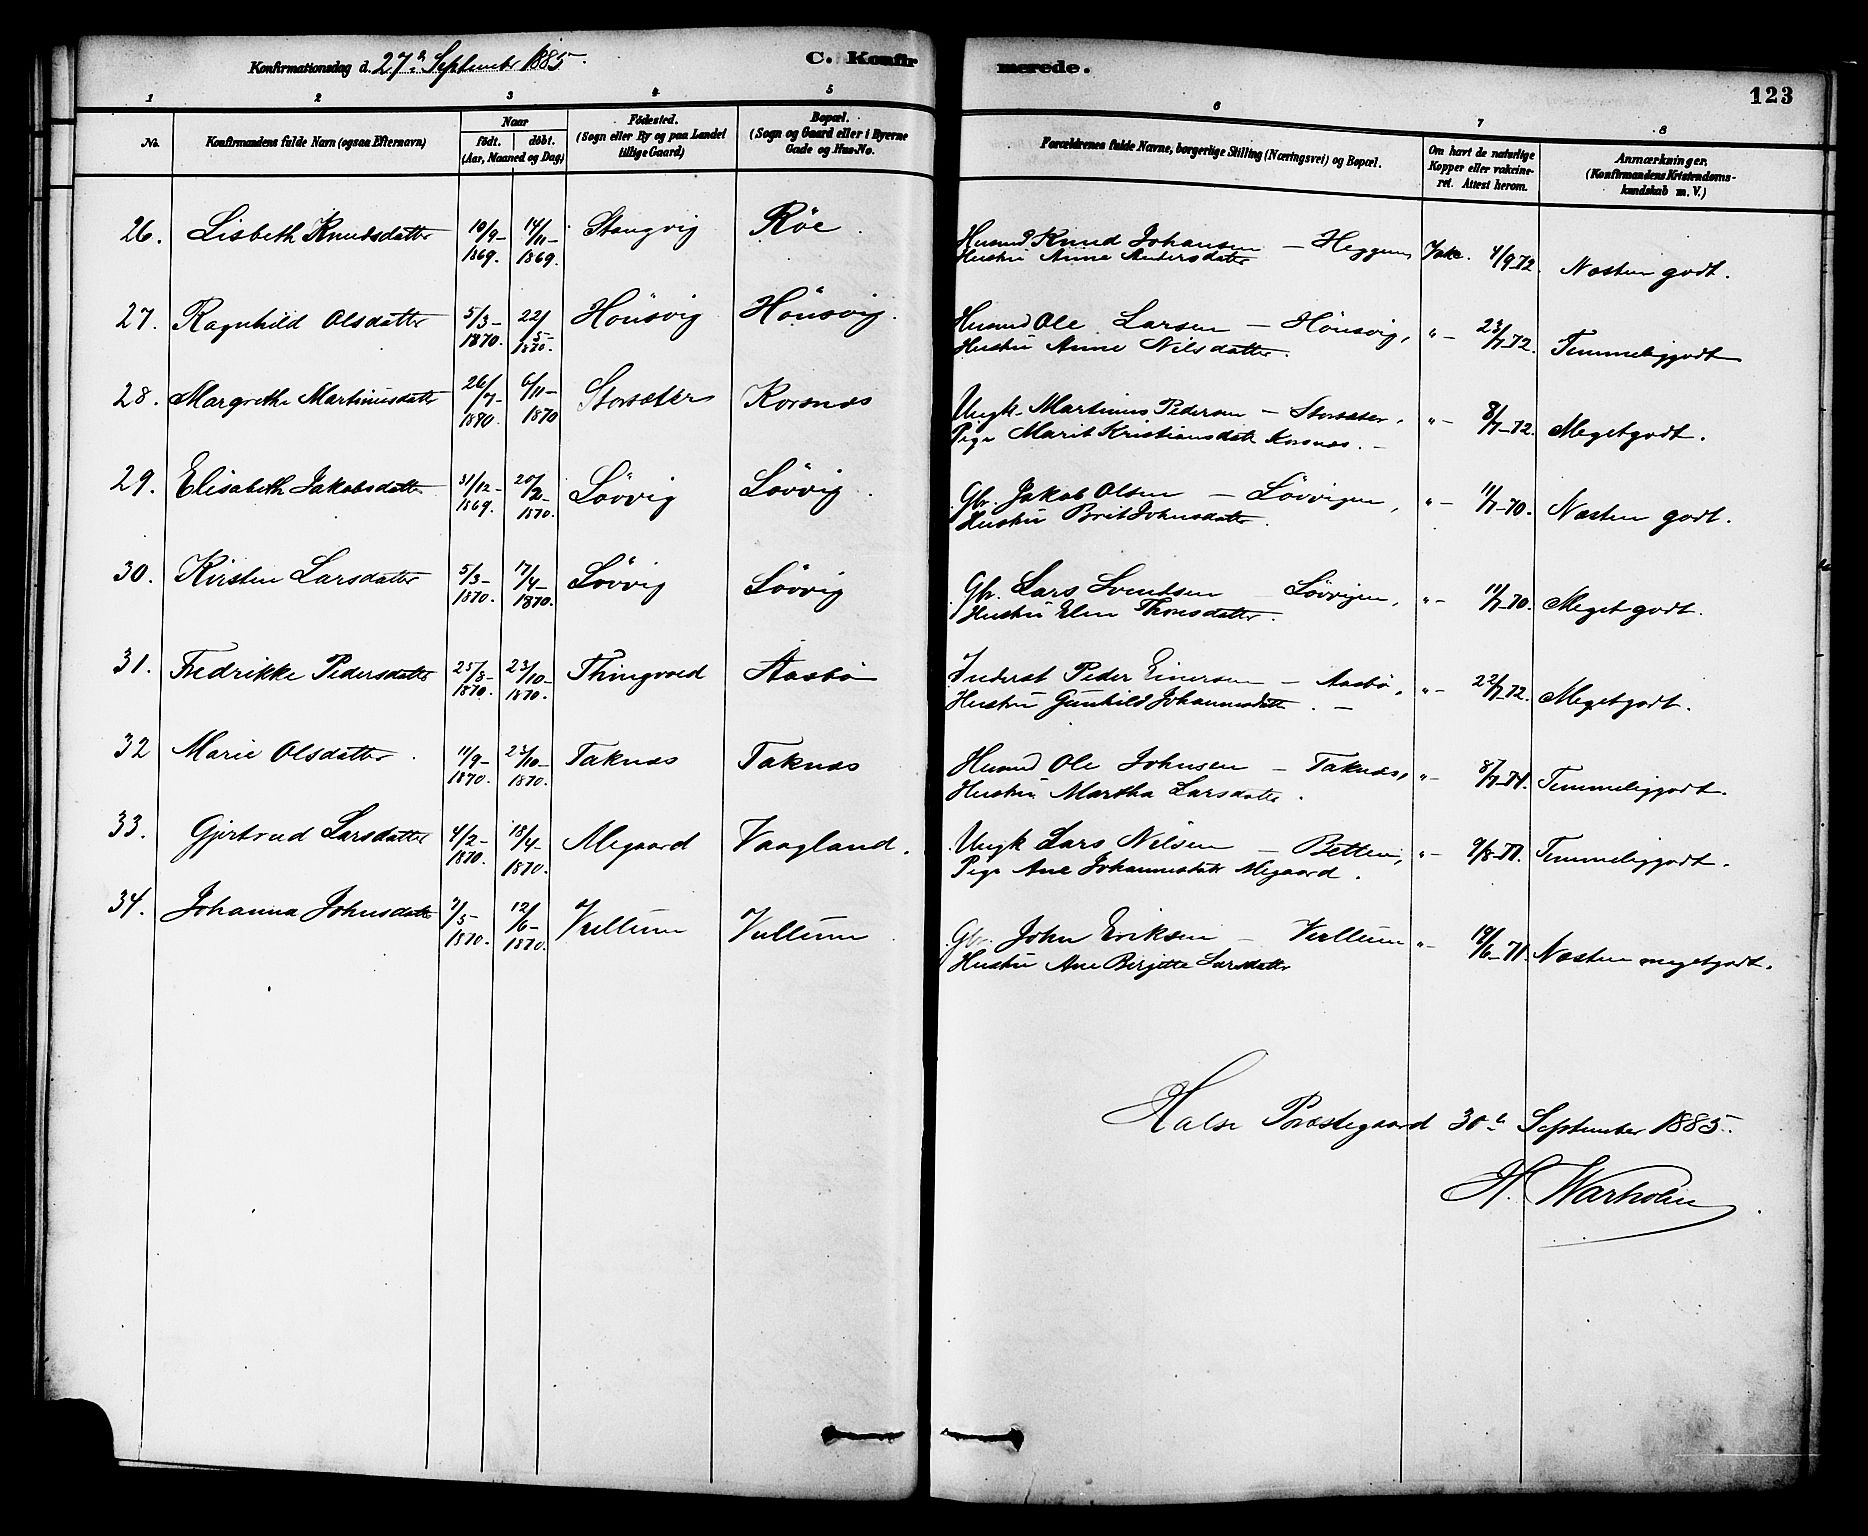 Konfirmationsdag d. 27de September 1885. C. Konfirmerede.
123
1 2 3 4 5 6 7 8
No. Konfirmandens fulde Navn (ogsaa Efternavn) Naar født. døbt. (Aar, Maaned og Dag) Fødested. (Sogn eller By og paa Landet tillige Gaard) Bopæl. (Sogn og Gaard eller i Byerne Gade og Hus-No. Forældrenes fulde Navne, borgerlige Stilling (Næringsvei) og Bopæl. Om havt de naturlige Kopper eller vakcineret. Attest herom. Anmærkninger. (Konfirmandens Kristendomskundskab m. V.)
26. Lisbeth Knudsdatter 10/9-1869. 14/11-1869. Stangvig Røe. Husmd Knud Johansen – Heggem, Vakc. 4/9-72. Næsten godt.
Hustru Anne Andersdatter
27. Ragnhild Olsdatter 5/3-1870. 22/5-1870. Hønsvig Hønsvig. Husmd Ole Larsen – Hønsvig, "- 23/7-72. Temmelig godt
Hustru Anne Nilsdatter.
28. Margrethe Martinusdatter 26/7-1870. 6/11-1870 Storsæter Korsnæs Ungk. Martinus Pedersen – Storsæter, "- 8/7-72. Meget godt.
Pige Marit Kristiansdatt Korsnæs. –
29. Elisabeth Jakobsdatter 31/12-1869. 20/2-1870. Løvvig Løvvig. Gbr. Jakob Olsen – Løvvigen, "- 11/7-70. Næsten godt.
Hustru Brit Johnsdatter.
30. Kirsten Larsdatter 5/3-1870. 17/4-1870. Løvvig Løvvig Gbr. Lars Svendsen – Løvvigen, "- 11/7-70. Meget godt.
Hustru Elen Thoresdatter.
31. Fredrikke Pedersdatter 25/8-1870. 23/10-1870. Thingvold Aasbø Inderst Peder Einersen – Aasbø, "- 22/7-72. Meget godt.
Hustru Gunhild Johannesdatt. –
32 Marie Olsdatter. 11/9-1870. 23/10-1870. Taknæs Taknæs Husmd Ole Johnsen – Taknæs, "- 8/7-71. Temmelig godt.
Hustru Martha Larsdatter.
33. Gjertrud Larsdatter 4/2-1870. 18/4-1870. Megaard Vaagland. Ungk Lars Nilsen – Betten, "- 9/8-71. Temmelig godt.
Pige Ane Johannesdatt Megaard.
34. Johanna Johnsdatter 7/5-1870. 12/6-1870. Vullum Vullum Gbr. John Eriksen – Vullum "- 18/6-71. Næsten meget godt.
Hustru Ane Birgitte Larsdatter
Halse Præstegaard 30te September 1885.
H. Warholm